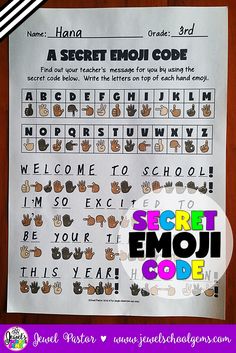 Name: Hana Grade: 3rd
A SECRET EMOJI CODE
Find out your teacher's message for you by using the
secret code below. Write the letters on top of each hand emoji.
A B C D E F G H I J K L M
N O P Q R S T U V W X Y Z
WELCOME TO SCHOOL!
I'M SO EXCITED TO
BE YOUR TE
THIS YEAR!
SECRET
EMOJI
CODE
Jewel Pastor ♥ www.jewelschoolgems.com